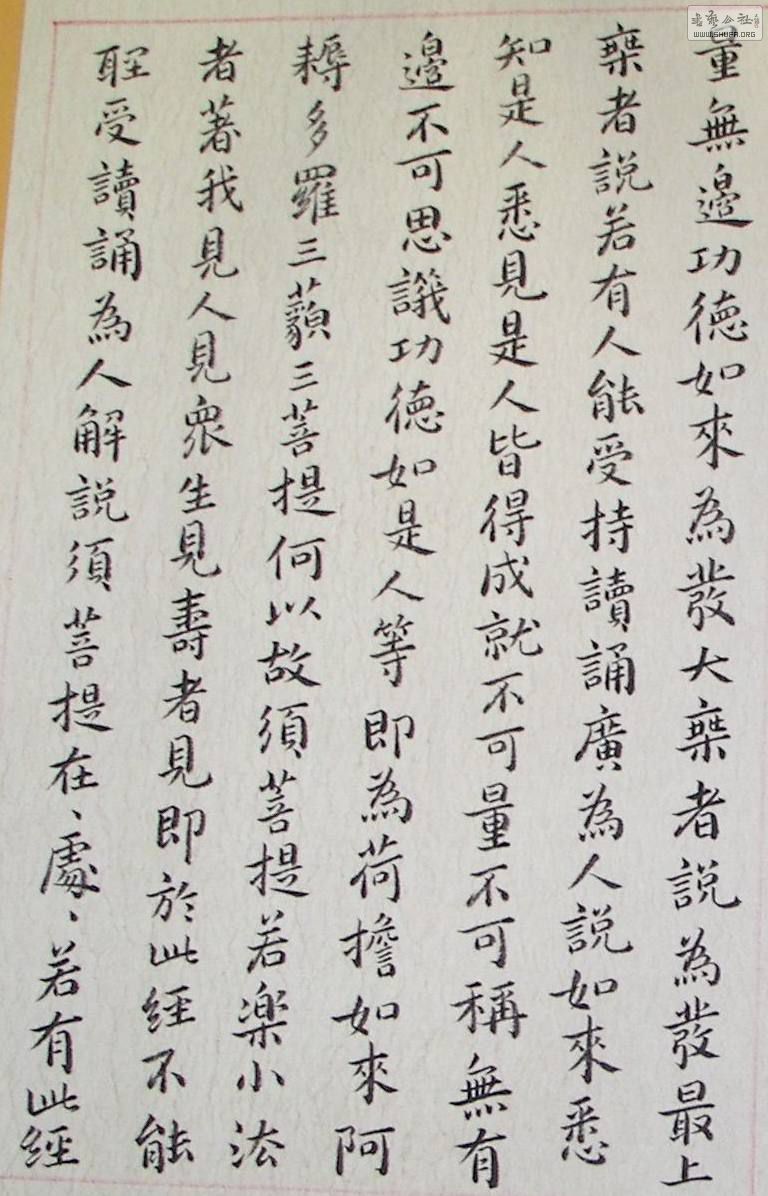 量無邊功德如來為發大乘者說為發最上
乘者說若有人能受持讀誦廣為人說如來悉
知是人悉見是人皆得成就不可量不可稱無有
邊不可思議功德如是人等即為荷擔如來阿
耨多羅三藐三菩提何以故須菩提若樂小法
者著我見人見衆生見壽者見即於此經不能
聽受讀誦為人解說須菩提在〻處〻若有此經
書藝公社
WWW.SHUFA.ORG